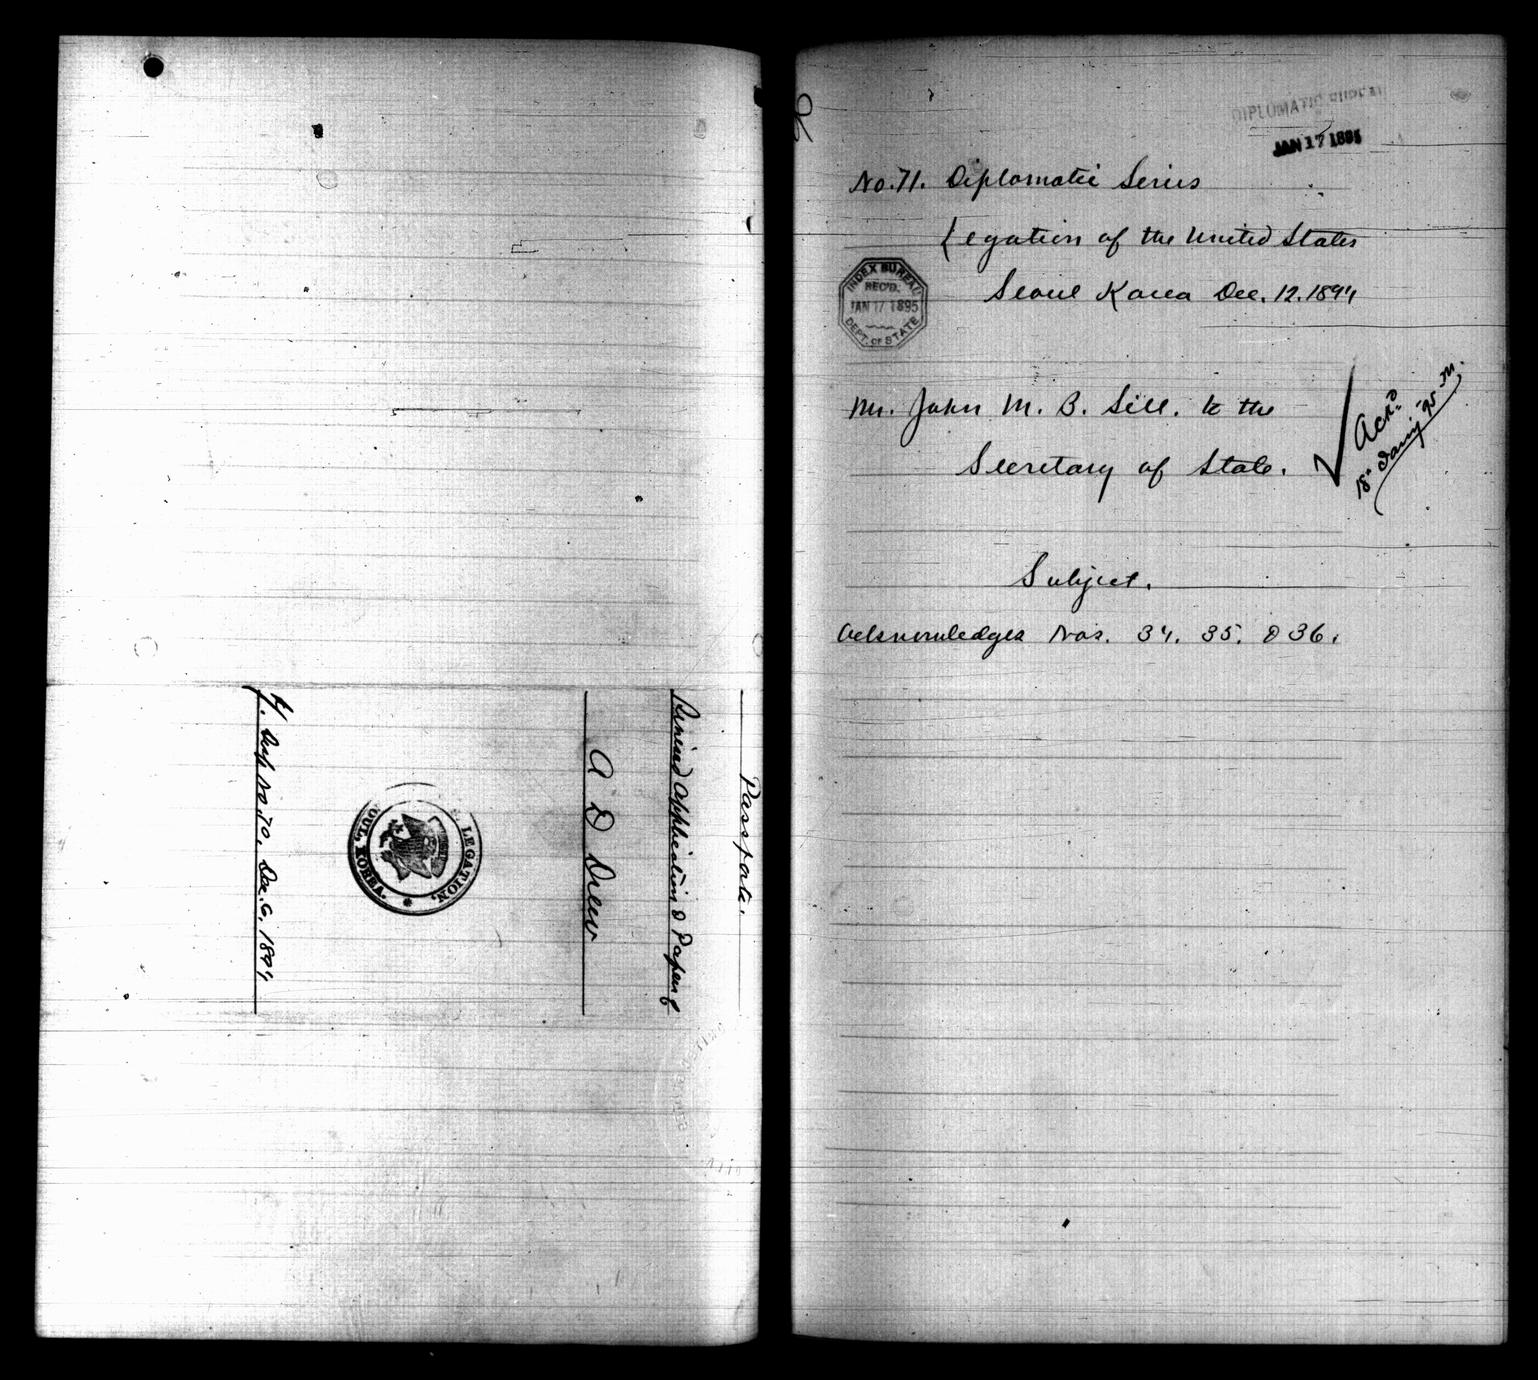 Passports.
Renewed Application & Paper of
A D Drew
LEGATION,
OUL, KOREA.
Dsp No. 70, Dec. 6, 1894
DIPLOMATIC BUREAU
JAN 17 1895
No. 71. Diplomatic Series
Legation of the United States
Seoul Korea Dec. 12. 1894
INDEX BUREAU
REC'D.
JAN 17 1895
DEPT. OF STATE
Mr. John M. B. Sill. to the
Secretary of State.
Ackd
18" Jany '95
Subject.
Acknowledges Nos. 34. 35. & 36.